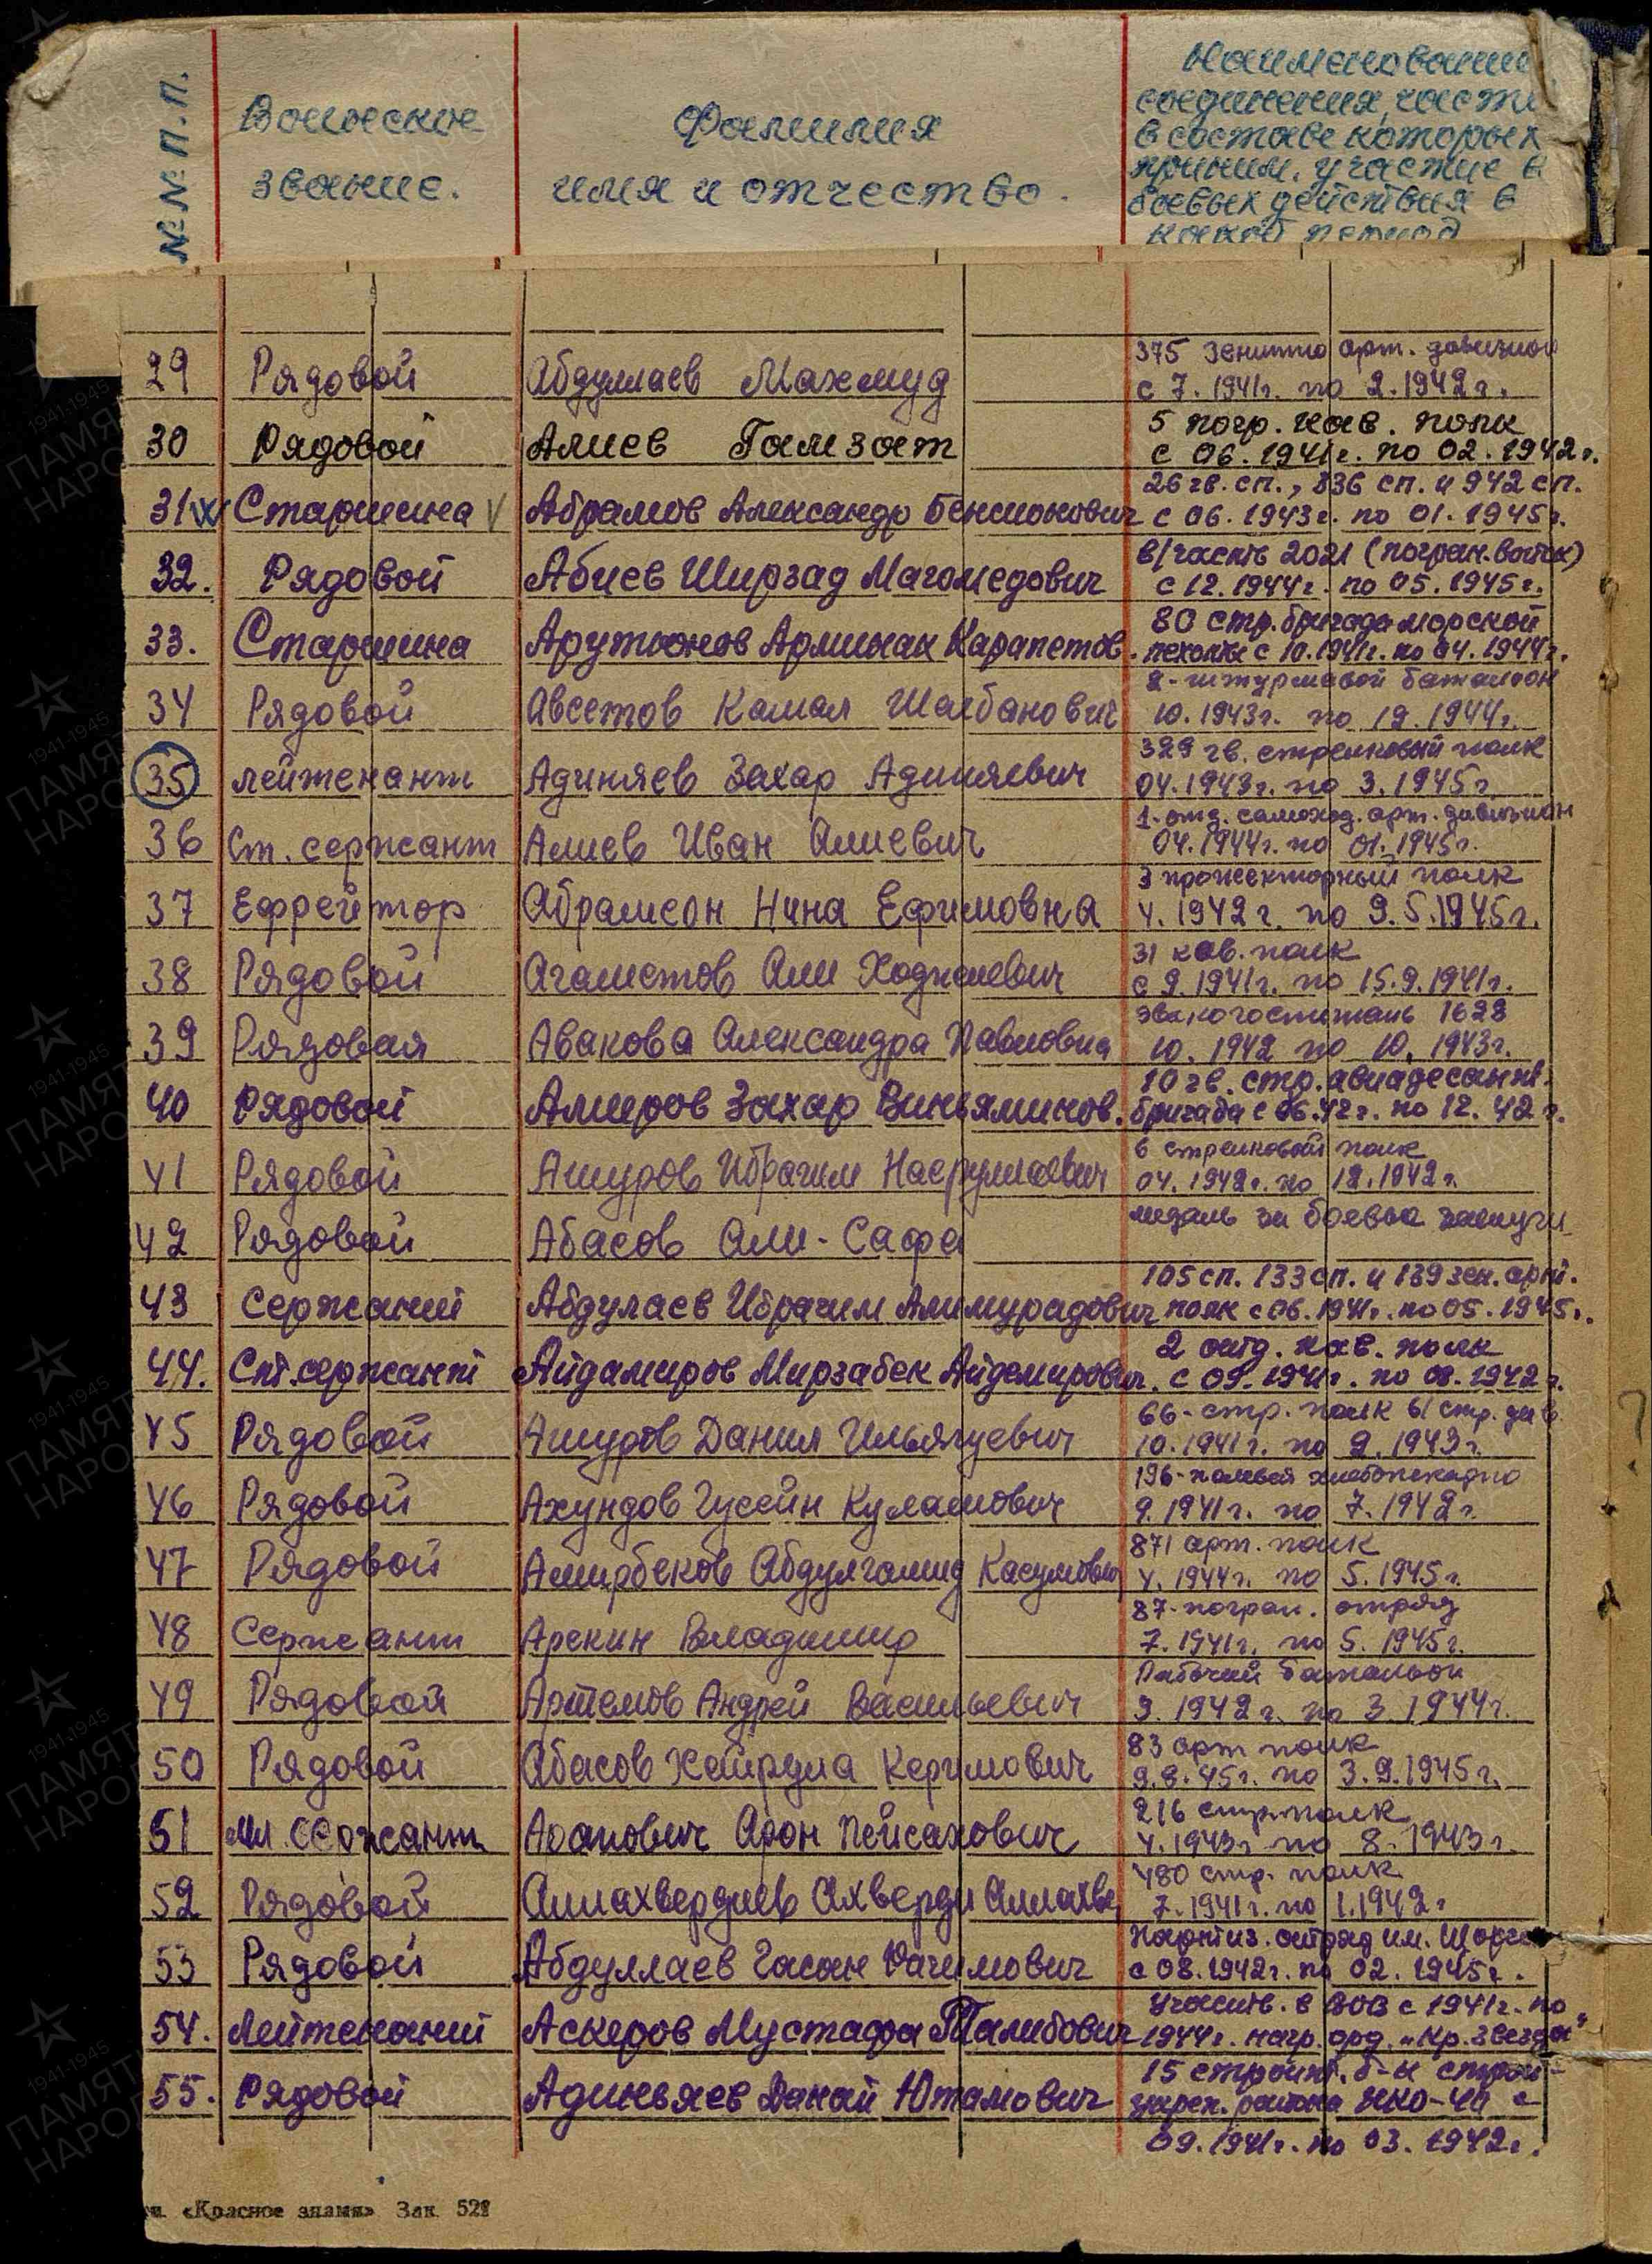 №№ п.п.
Воинское
звание.
Фамилия
имя и отчество.
Наименование
соединения, части
в составе которых
приним. участие в
боевых действия в
какой период
375 зенитно арт. дивизион
29 Рядовой Абдуллаев Махмуд с 7.1941г. по 2.1942г.
5 погр. кав. полк
30 Рядовой Алиев Гамзат с 06.1941г. по 02.1942г.
26 гв. сп., 836 сп. и 942 сп.
31 Старшина Абрамов Александр Бенсионович с 06.1943г. по 01.1945г.
в/часть 2021 (погран. войска)
32. Рядовой Абиев Ширзад Магомедович с 12.1944г. по 05.1945г.
80 стр. бригада морской
33. Старшина Арутюнов Арминак Карапетов. пехоты с 10.1941г. по 04.1944г.
2-штурмовой батальон
34 Рядовой Авсетов Камал Шаабанович 10.1943г. по 12.1944г.
329 гв. стрелковый полк
35 лейтенант Адиняев Захар Адиняевич 04.1943г. по 3.1945г
1-отд. самоход. арт. дивизион
36 Ст. сержант Алиев Иван Алиевич 04.1944г. по 01.1945г.
3 прожекторный полк
37 Ефрейтор Абрамсон Нина Ефимовна 4.1942г. по 9.5.1945г.
31 кав. полк
38 Рядовой Агаметов Али с 9.1941г. по 15.9.1941г.
эвакогоспиталь 1628
39 Рядовая Авакова Александра Павловна 10.1942 по 10.1943г.
10 гв. стр. авиадесантн.
40 Рядовой Амиров Захар Виньяминов. бригада с 06.42г. по 12.42г.
6 стрелковой полк
41 Рядовой Ашуров Ибрагим Насруллаевич 04.1942г. по 12.1942г.
медаль за боевые заслуги
42 Рядовой Абасов Али-Сафа
105 сп. 133 сп. и 139 зен. арт.
43 Сержант Абдулаев Ибрагим Алимурадович полк с 06.1941г. по 05.1945г.
2 отд. кав. полк
44. Ст. сержант Айдамиров Мирзабек Айдемирович. с 09.1941г. по 08.1942г.
66-стр. полк 61 стр. див.
45 Рядовой Ашуров Данил Ильягуевич 10.1941г. по 9.1943г.
196-полевая хлебопекарня
46 Рядовой Ахундов Гусейн Куламович 9.1941г. по 7.1942г.
871 арт. полк
47 Рядовой Амирбеков Абдулгамид Касумович 4.1944г. по 5.1945г.
87-погран. отряд
48 Сержант Арекин Владимир 7.1941г. по 5.1945г.
Рабочий батальон
49 Рядовой Артемов Андрей Васильевич 9.1942г. по 3.1944г.
83 арт полк
50 Рядовой Абасов Хейрула Керимович 9.8.45г. по 3.9.1945г.
216 стр. полк
51 Мл. сержант Арон Пейсахович 4.1943г. по 8.1943г.
480 стр. полк
52 Рядовой Аллахвердиев Ахверди Аллахве 7.1941г. по 1.1942г
Партиз. отряд им. Щорса
53 Рядовой Абдуллаев Гасан Рагимович с 08.1942г. по 02.1945г.
Участв. в ВОВ с 1941г. по
54. Лейтенант Аскеров Мустафа Талибович 1944г. нагр. орд. „Кр. Звезда"
15 строит. б-н строй-
55. Рядовой Адиньяев Данай Ютамович укреп. района с
09.1941г. по 03.1942г.
«Красное знамя» Зак. 528